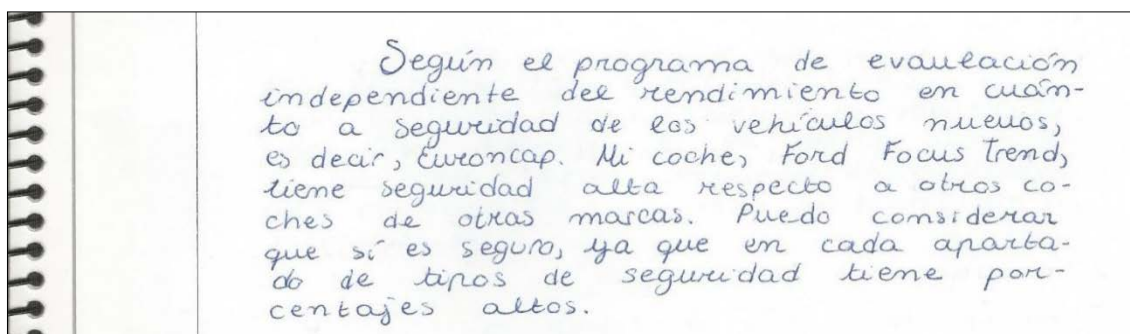 Según el programa de evaulación
independiente del rendimiento en cuán-
to a seguridad de los vehículos nuevos,
es decir, Euroncap. Mi coche, Ford Focus Trend,
tiene seguridad alta respecto a otros co-
ches de otras marcas. Puedo considerar
que sí es seguro, ya que en cada aparta-
do de tipos de seguridad tiene por-
centajes altos.